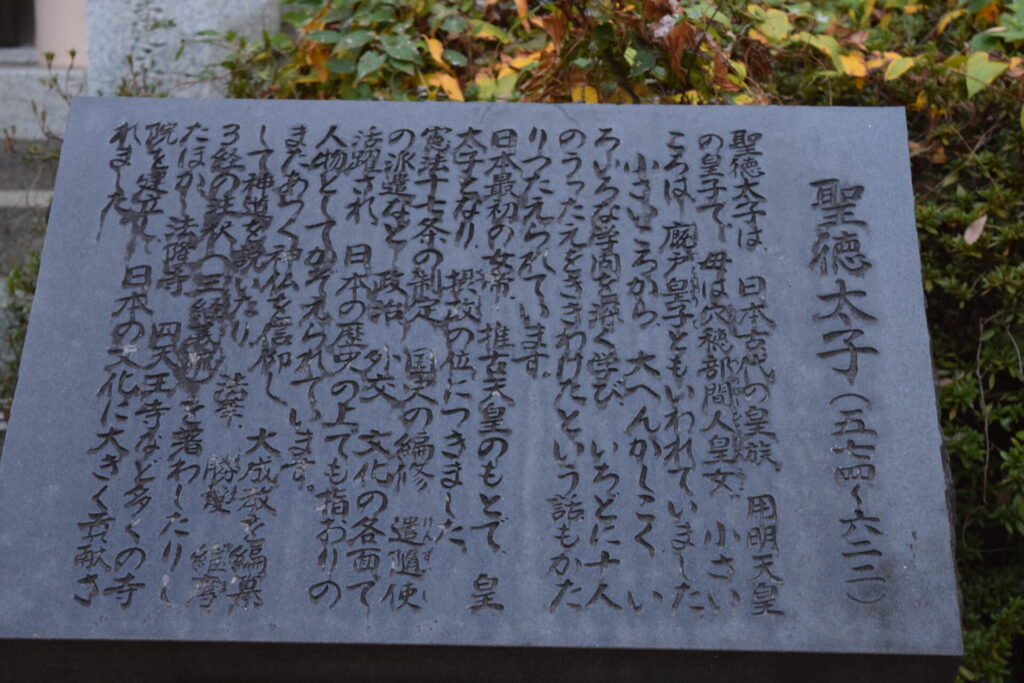 聖徳太子(五七四〜六二二)
聖徳太子は 日本古代の皇族 用明天皇
の皇子で 母は穴穂部間人皇女 小さい
ころは 厩戸皇子ともいわれていました
小さいころから 大へんかしこく い
ろいろな学問を 学び いちどに十人
のうったえをききわけたという話もかた
りつたえられています。
日本最初の女帝 推古天皇のもとで 皇
太子となり 摂政の位につきました
憲法十七条の制定 国史の編修 遣隋使
の派遣など 政治 外交 文化の各面で
活躍され 日本の歴史の上でも指おりの
人物としてかぞえられています。
またあつく神仏を信仰し 大成教を編纂
して神道を説いたり 法華 勝鬘 維摩
3経の注釈(三経義疏)を著わしたりし
たほか 法隆寺 四天王寺など多くの寺
院を建立し 日本の文化に大きく貢献さ
れました